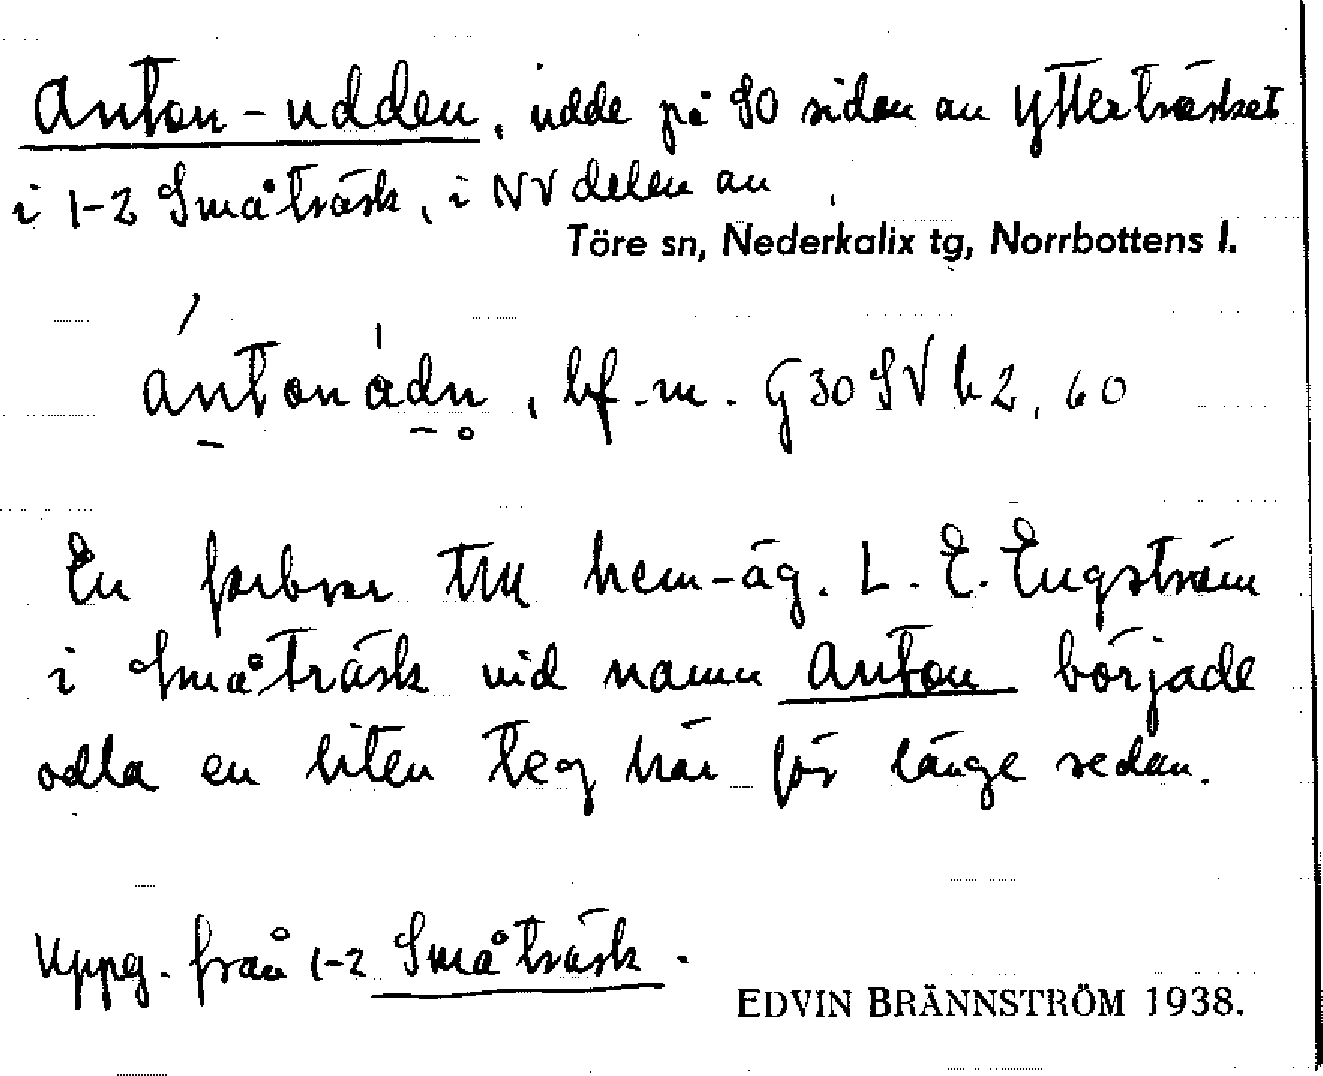 Anton-udden, udde på SO sidan av Ytterträsket
i 1-2 Småträsk, i NV delen av
Töre sn, Nederkalix tg, Norrbottens l.
ántonådn, bf. m. G30SVh2, 60
En farbror till hem-äg. L. E. Engström
i Småträsk vid namn Anton började
odla en liten teg här för länge sedan.
Uppg. från 1-2 Småträsk.
EDVIN BRÄNNSTRÖM 1938.